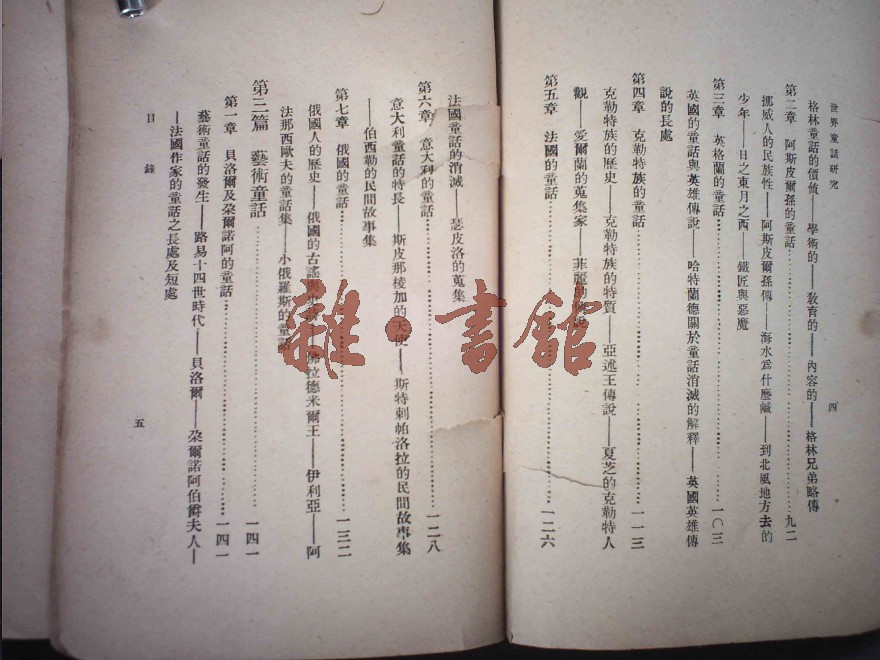 世界童話研究
四
格林童話的價值——學術的——敎育的——內容的——格林兄弟略傳
第二章　阿斯皮爾孫的童話……九二
挪威人的民族性——阿斯皮爾孫傳——海水爲什麼鹹——到北風地方去的
少年——日之東月之西——鐵匠與惡魔
第三章　英格蘭的童話……一〇三
英國的童話與英雄傳說——哈特蘭德關於童話消滅的解釋——英國英雄傳
說的長處
第四章　克勒特族的童話……一一三
克勒特族的歷史——克勒特族的特質——亞述王傳說——夏芝的克勒特人
觀——愛爾蘭的蒐集家——菲麗的傳說
第五章　法國的童話……一二六
法國童話的消滅——瑟皮洛的蒐集
第六章　意大利的童話……一二八
意大利童話的特長——斯皮那棱加的天使——斯特剌帕洛拉的民間故事集
——伯西勒的民間故事集
第七章　俄國的童話……一三二
俄國人的歷史——俄國的古謠與——佛拉德米爾王——伊利亞——阿
法那西歐夫的童話集——小俄羅斯的童話
第三篇　藝術童話……一四一
第一章　貝洛爾及朶爾諾阿的童話……一四一
藝術童話的發生——路易十四世時代——貝洛爾——朶爾諾阿伯爵夫人—
—法國作家的童話之長處及短處
目錄
五
雜·書館